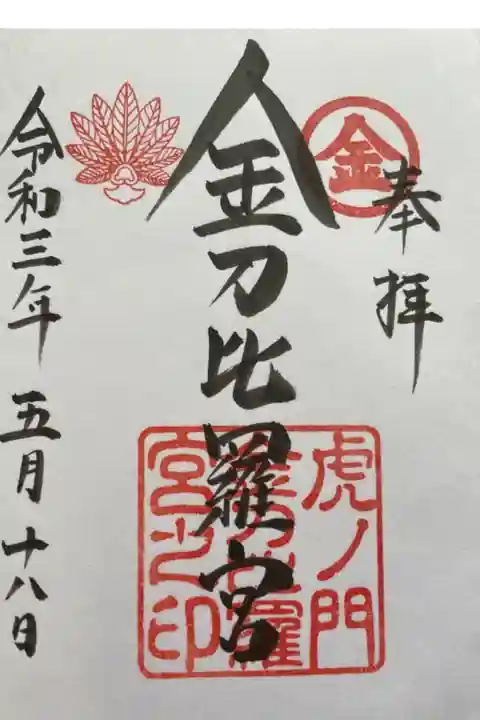 奉拝
金
金刀比羅宮
虎ノ門
金刀比羅
宮之印
令和三年 五月十八日